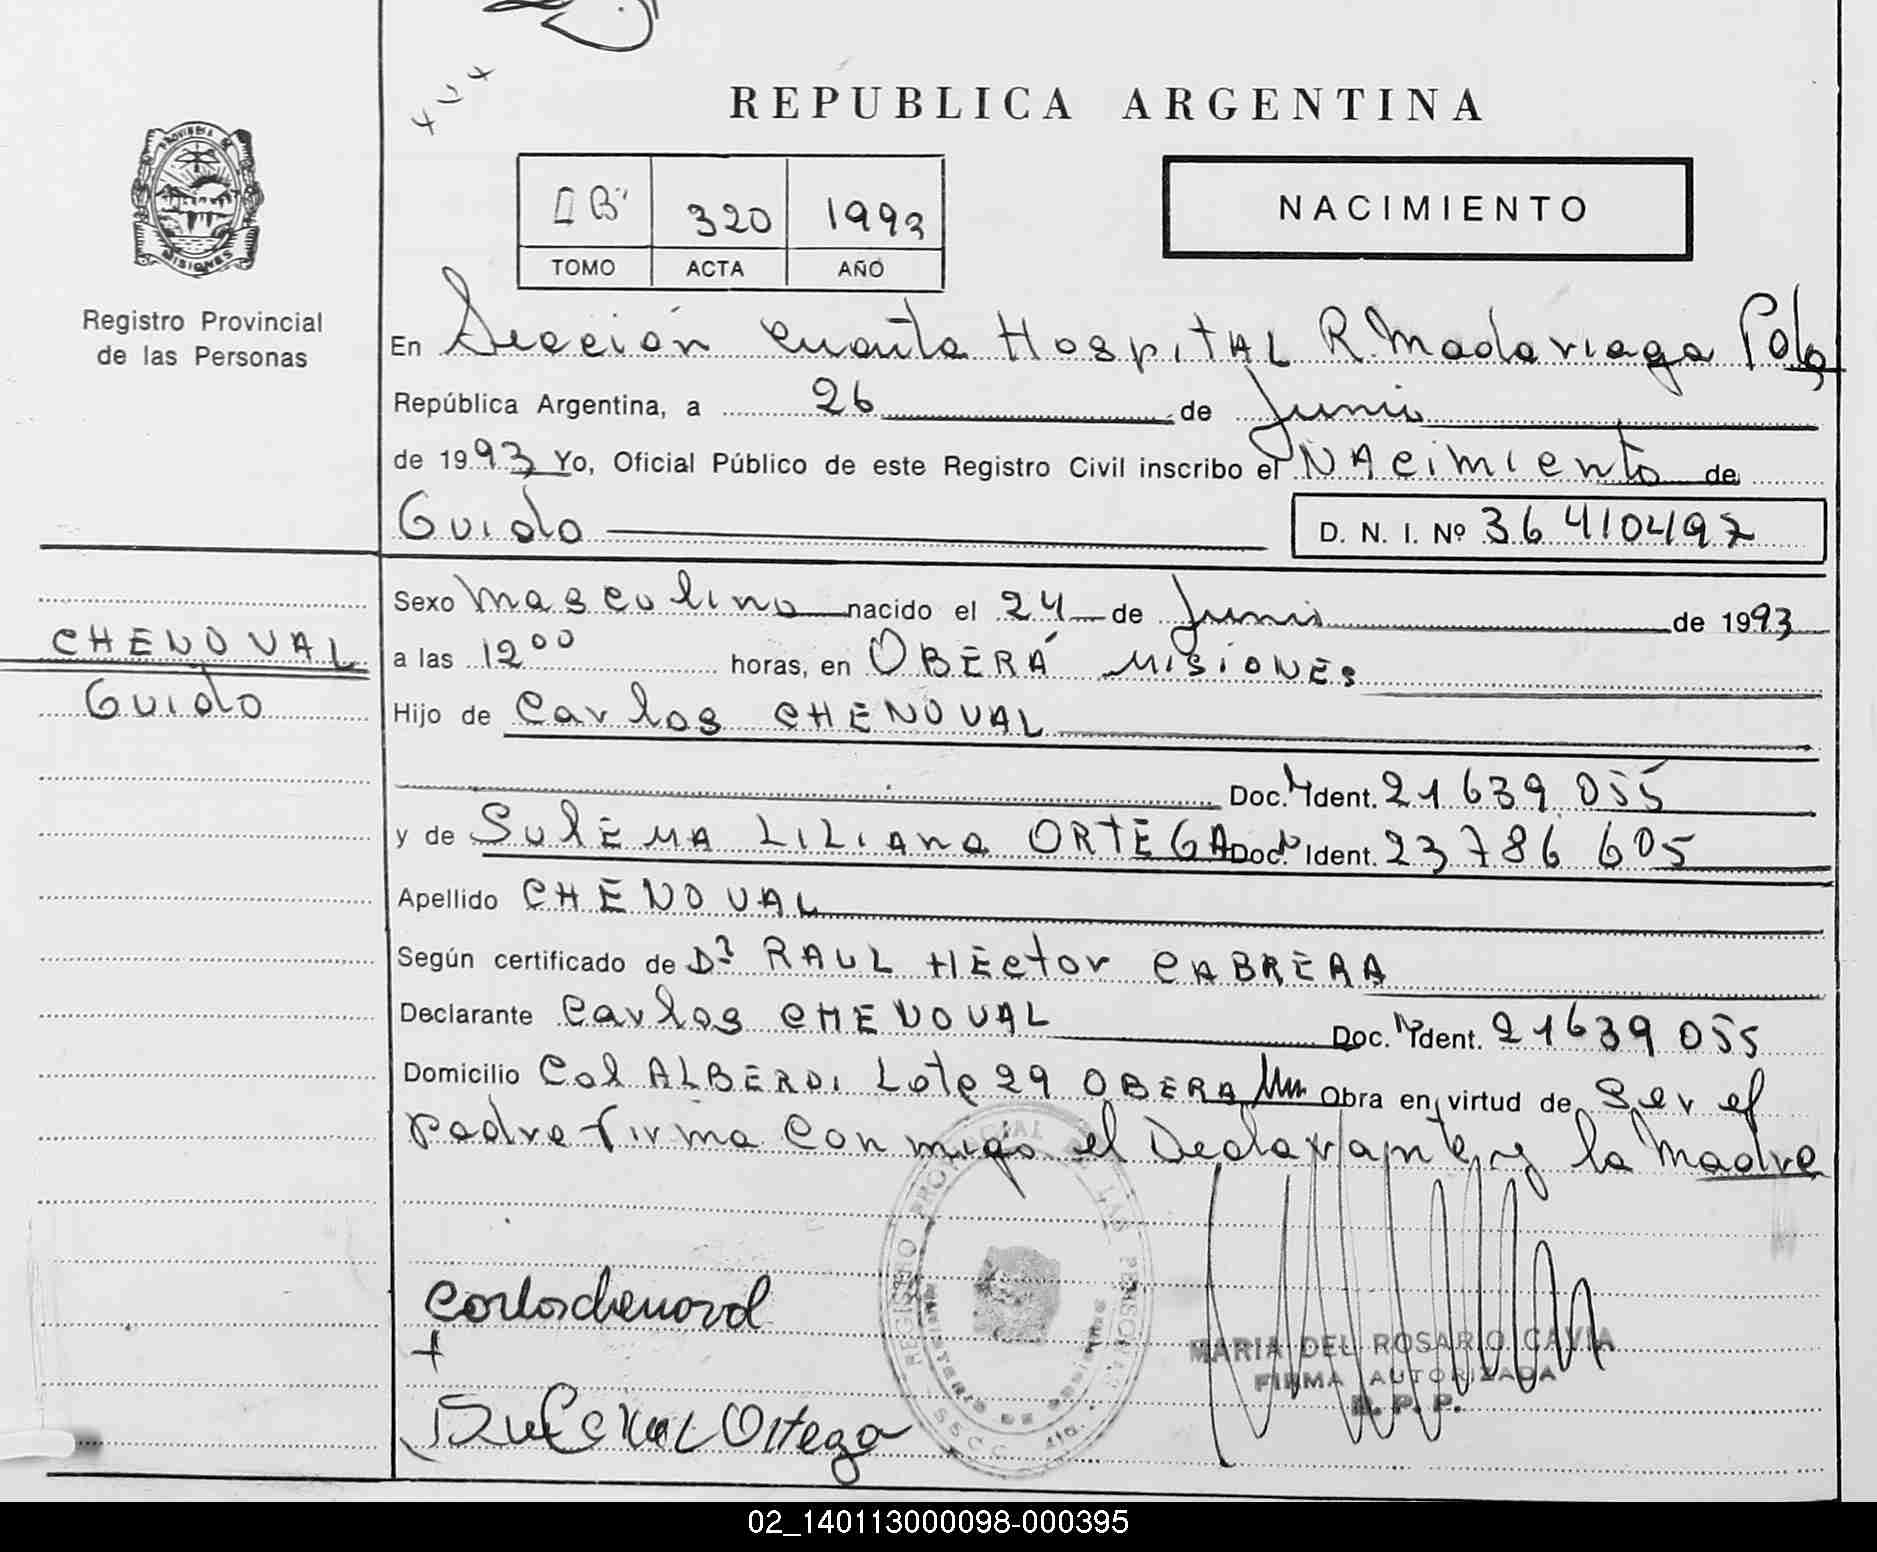 REPUBLICA ARGENTINA
PROVINCIA DE
MISIONES
Registro Provincial
de las Personas
320 1993
TOMO ACTA AÑO
NACIMIENTO
En Sección Cuarta Hospital R. Madariaga Pdas
República Argentina, a 26 de Junio
de 1993 Yo, Oficial Público de este Registro Civil inscribo el NAcimiento de
Guido D. N. I. Nº 36 410497
Sexo Masculino nacido el 24 de Junio de 1993
CHENOVAL
Guido
a las 12 00 horas, en OBERÁ MISIONES
Hijo de Carlos CHENOVAL
Doc. N Ident. 21 639 055
y de SulEMA LILIANA ORTEGA Doc. N Ident. 23 786 605
Apellido CHENOVAL
Según certificado de Dr RAUL HEctor CABRERA
Declarante Carlos CHENOVAL Doc. N Ident. 21639 055
Domicilio Col ALBERDI Lote 29 OBERA Mnes Obra en virtud de ser el
padre firma conmigo el Declarante y la Madre
REGISTRO PROVINCIAL DE LAS PERSONAS
MINISTERIO DE
SSCC 4ta.
Carlos chenoval
+
Ortega
MARIA DEL ROSARIO CAVIA
FIRMA AUTORIZADA
R. P. P.
02_140113000098-000395